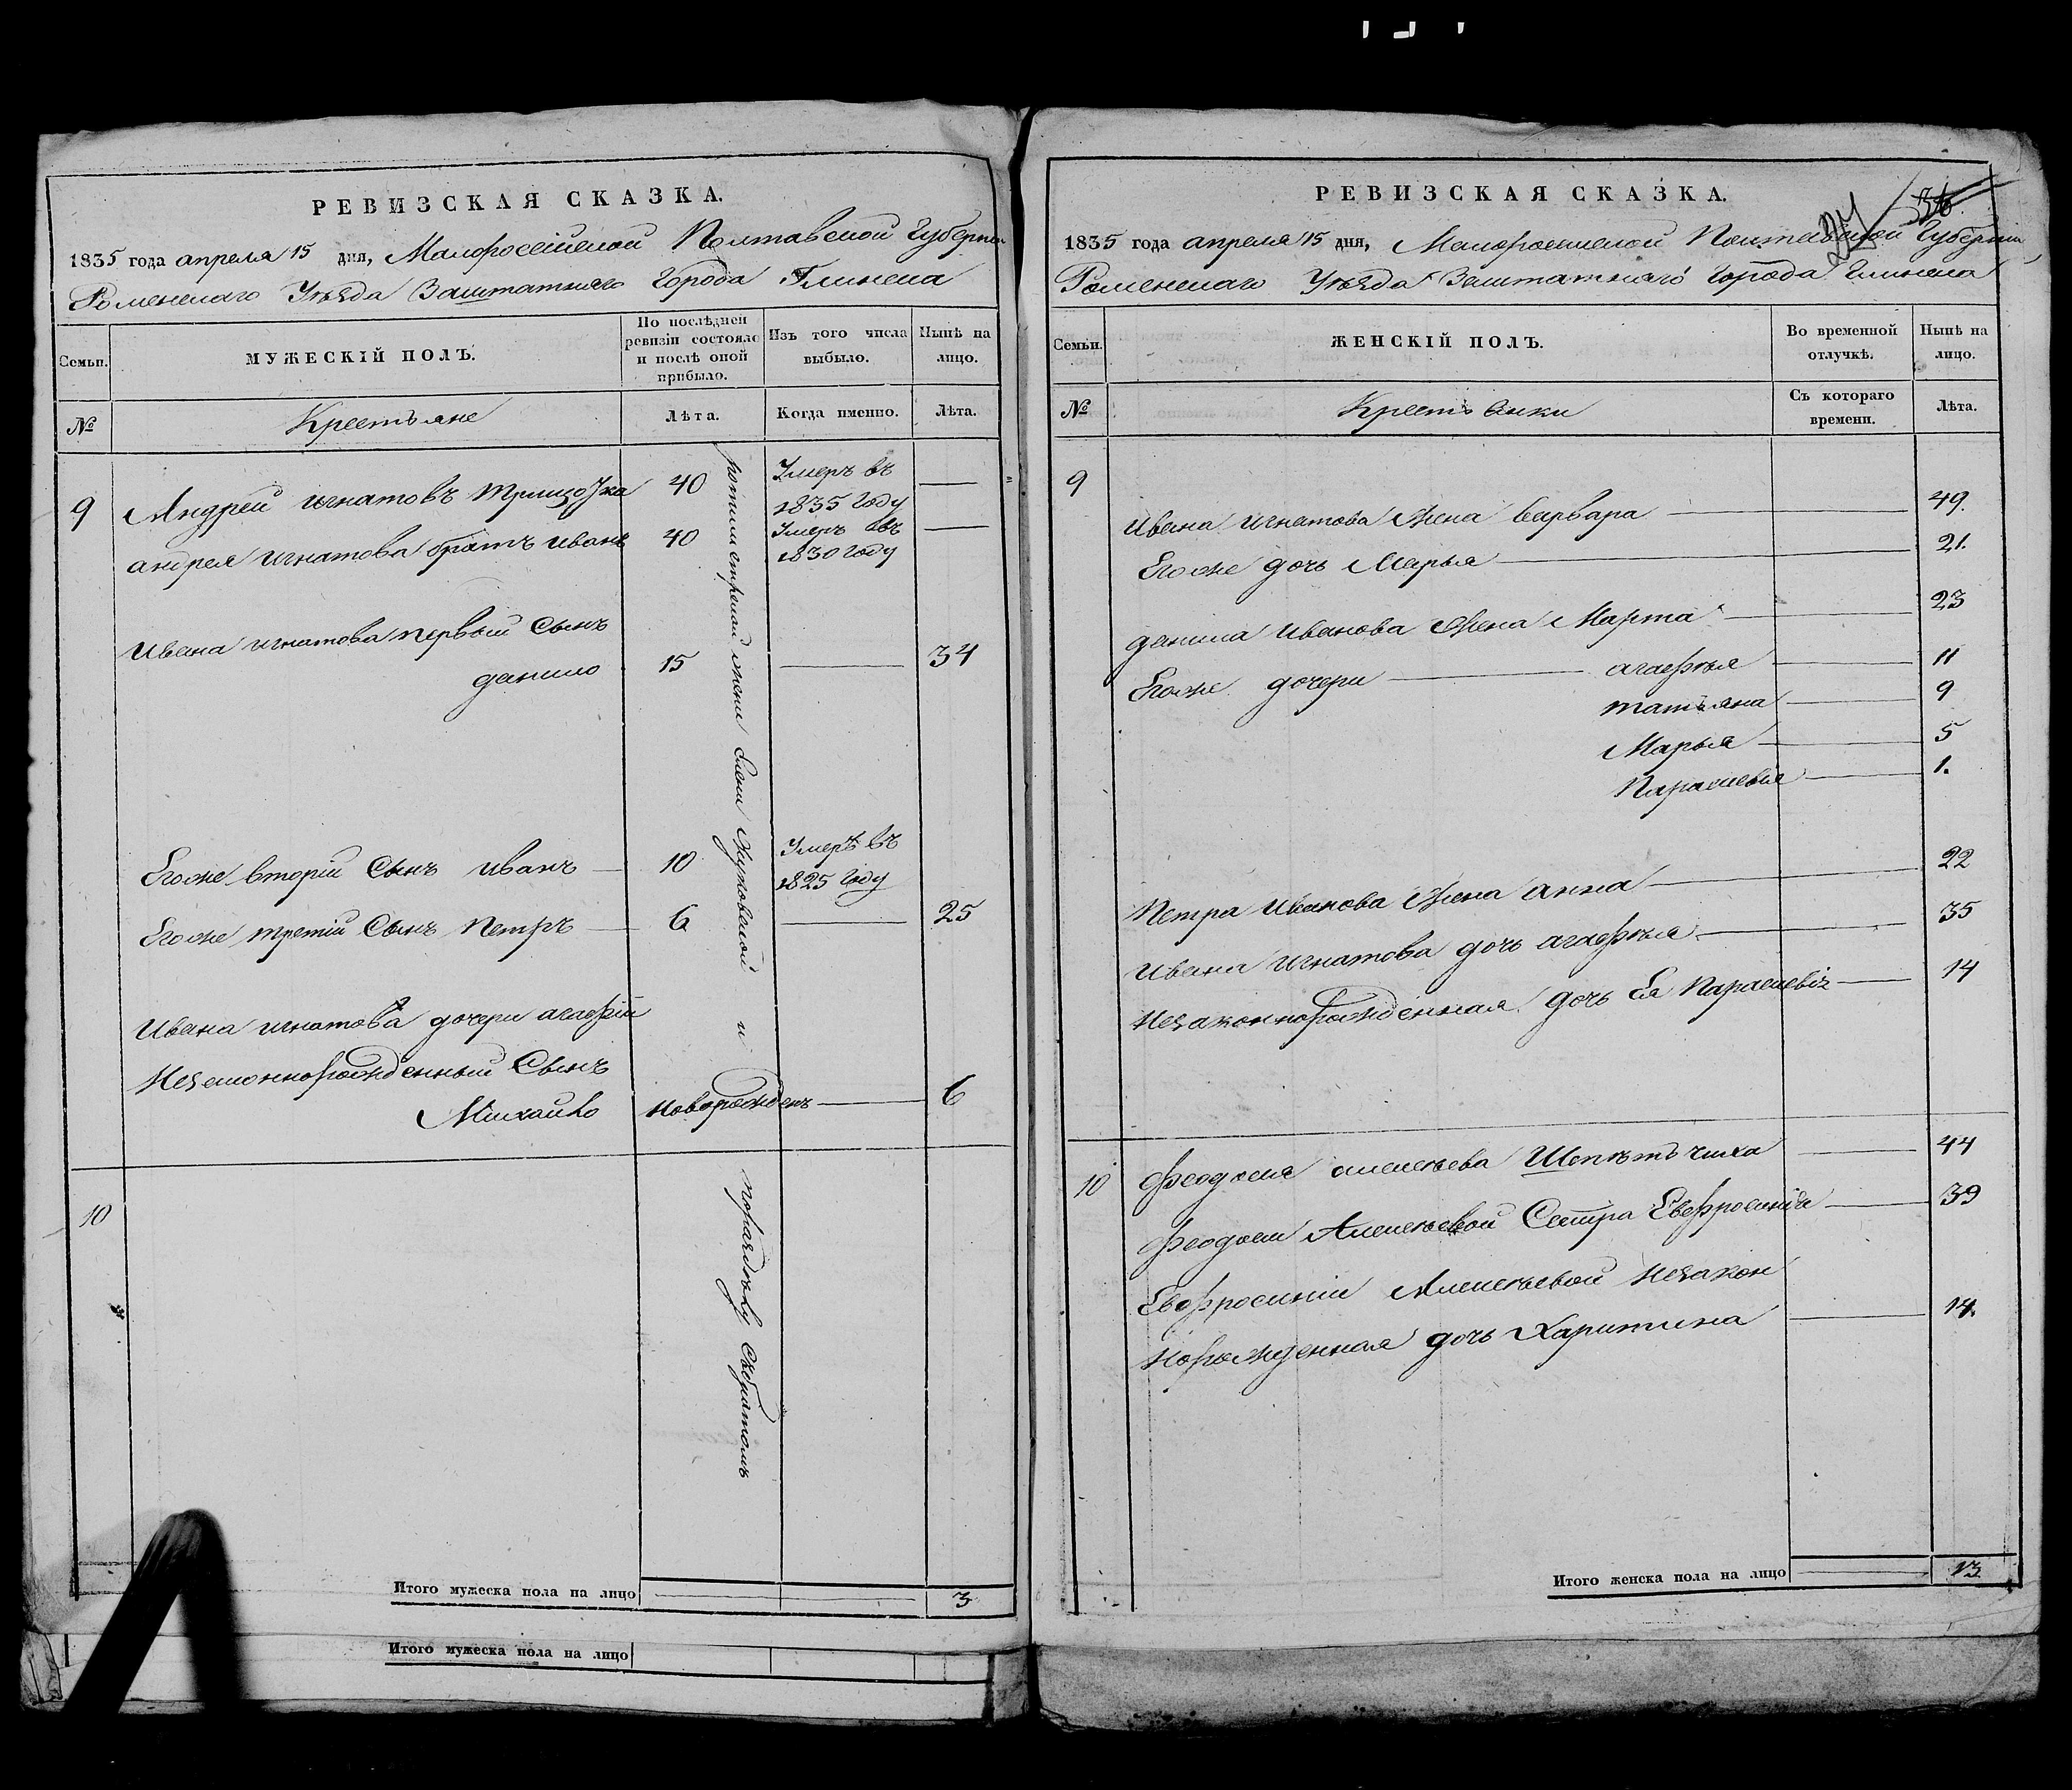 РЕВИЗСКАЯ СКАЗКА.
1835 года апреля 15 дня, Малоросейской Полтавской Губернии
Роменскаго Уѣзда Заштатнаго Города Глинска
Семьи.
МУЖЕСКІЙ ПОЛЪ.
По послѣдней ревизіи состояло и послѣ оной прибыло.
Изъ того числа выбыло.
Нынѣ на лицо.
№
Крестьяне
Лѣта.
Когда именно.
Лѣта.
9 Андрей игнатовъ 40 Умеръ въ 1835 году
андрея игнатова братъ иванъ 40 Умеръ въ 1830 году
Ивана игнатова первый сынъ
данило 15 34
Егоже вторій сынъ иванъ 10 Умеръ въ 1825 году
Егоже третій сынъ Петръ 6 25
Ивана игнатова дочери агафіи
Незаконнорожденный Сынъ
Михайло новорожденъ 6
10
жени Елени Жуковской и
Итого мужеска пола на лицо 3
Итого мужеска пола на лицо
РЕВИЗСКАЯ СКАЗКА.
1835 года апреля 15 дня, Малоросийской Полтавской Губернии
Роменскаго Уѣзда Заштатнаго Города Глинска
Семьи.
ЖЕНСКІЙ ПОЛЪ.
Во временной отлучкѣ.
Нынѣ на лицо.
№
Крестьянки
Съ котораго времени.
Лѣта.
9
Ивана игнатова Жена варвара 49.
Егоже дочь Марья 21.
данила иванова Жена Марта 23
Егоже дочери агафья 11
татьяна 9
Марья 5
Парасковья 1.
Петра иванова Жена анна 22
Ивана игнатова дочь агафья 35
Незаконнорожденная дочь Ея Парасковія 14
10 Феодосия алексеева 44
Феодосіи Алексѣевой Сестра Евфросинія 39
Евфросиніи Алексѣевой Незакон
норожденная дочь Харитина 14.
Итого женска пола на лицо 13